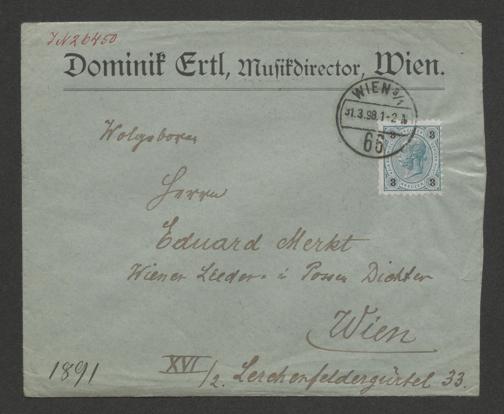 I.N 26450
Dominik Ertl, Musikdirector, Wien.
WIEN 9/1
31.3.98.1-2 N
66
3 3
3 3
Wolgeboren
Herrn
Eduard Merkt
Wiener Lieder- u Possen Dichter
Wien
1891
XVI/2. Lerchenfeldergürtel 33.